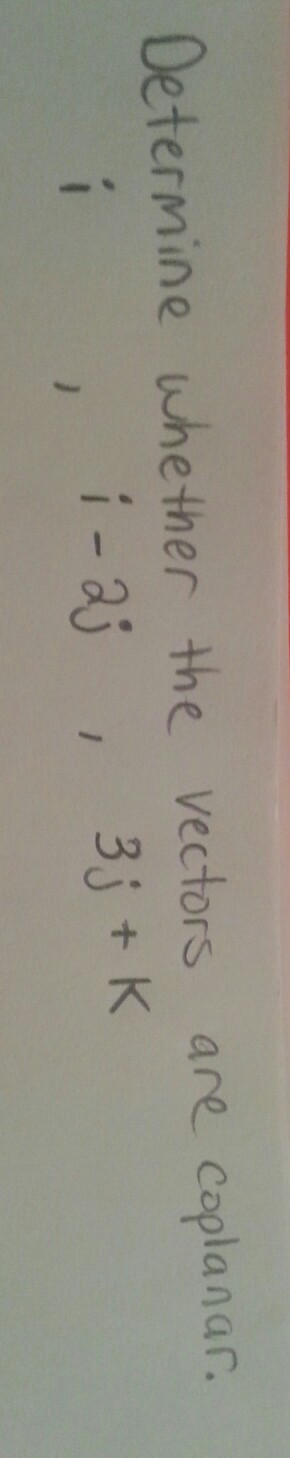 Determine whether the vectors are coplanar.
i , i - 2j , 3j + K